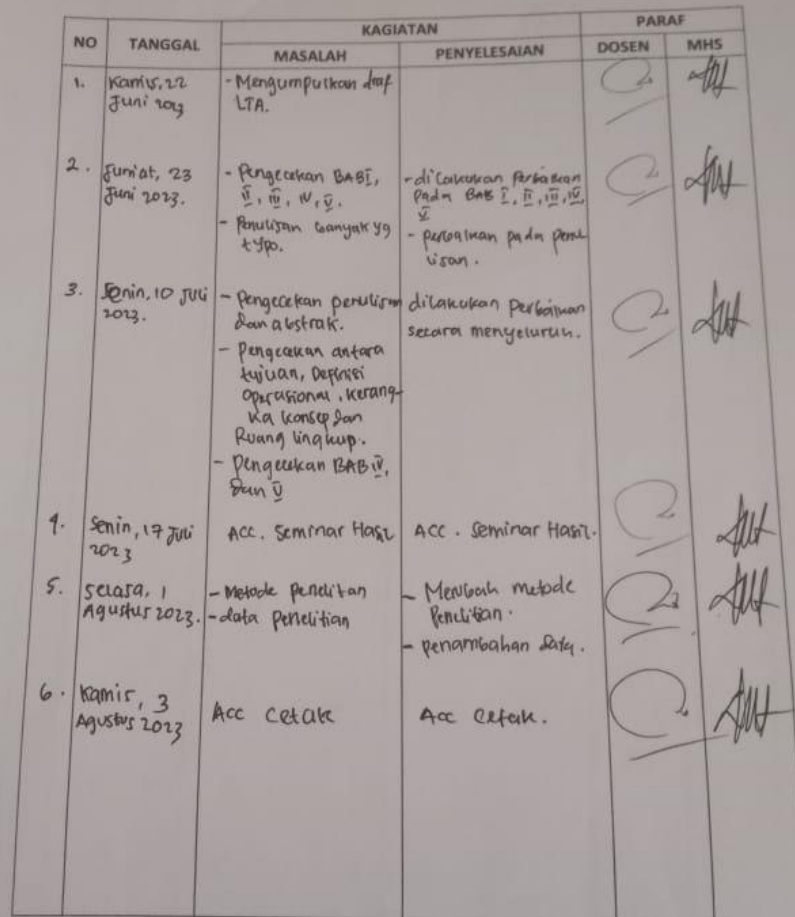 NO TANGGAL KAGIATAN PARAF
MASALAH PENYELESAIAN DOSEN MHS
1. Kamis, 22
Juni 2023
- Mengumpulkan draf
LTA.
2. Jum'at, 23
Juni 2023.
- Pengecekan BAB I,
II, III, IV, V.
- Penulisan banyak yg
typo.
- dilakukan Perbaikan
Pada BAB I, II, III, IV,
V
- perbaikan pada penu
lisan.
3. Senin, 10 Juli
2023.
- Pengecekan penulisan
dan abstrak.
- Pengecekan antara
tujuan, Definisi
Operasional, kerang-
ka konsep dan
Ruang lingkup.
- Pengecekan BAB IV,
dan V
dilakukan perbaikan
secara menyeluruh.
4. Senin, 17 Juli
2023
ACC. Seminar Hasil
ACC. Seminar Hasil.
5. Selasa, 1
Agustus 2023.
- Metode penelitan
- data penelitian
- Merubah metode
Penelitian.
- penambahan data.
6. Kamis, 3
Agustus 2023
Acc Cetak
Acc Cetak.